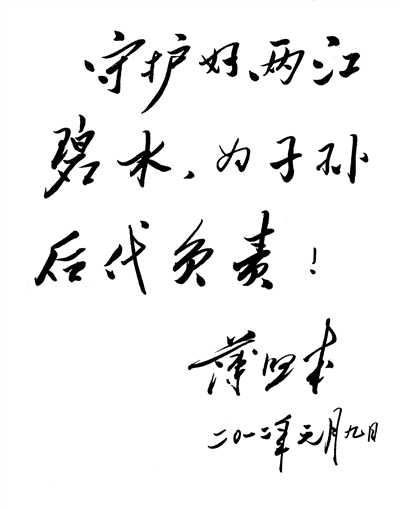 守护好两江
碧水,为子孙
后代负责!
薄熙来
二〇一二年元月九日